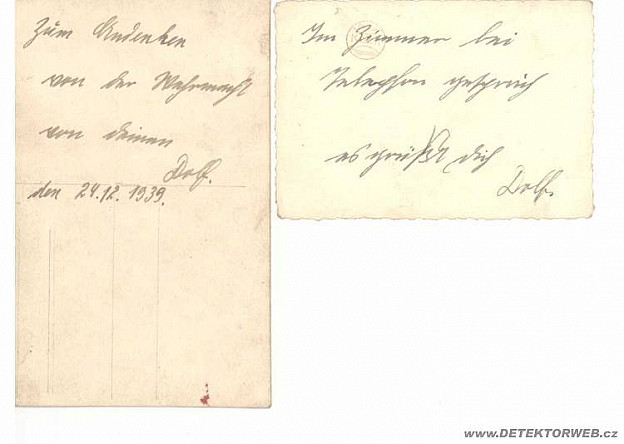 Zum Andenken
von der Wehrmacht
von deinen
Dolf.
den 24.12. 1939.
Im Zimmer bei
Telephon gespräch
es grüßt dich
Dolf.
www.DETEKTORWEB.cz